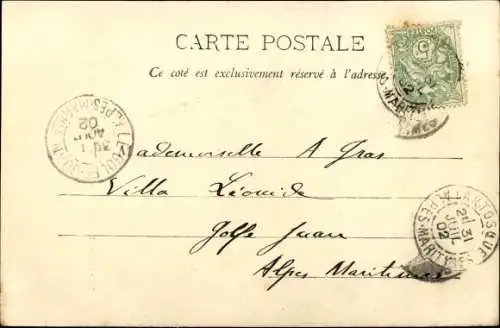 CARTE POSTALE
Ce coté est exclusivement réservé à l'adresse
5
Mademoiselle A Gras
Villa Léonide
Golfe Juan
Alpes Maritimes
ALPES-MARITMES
02
ALPES-MARITMES
31
JUIL
02